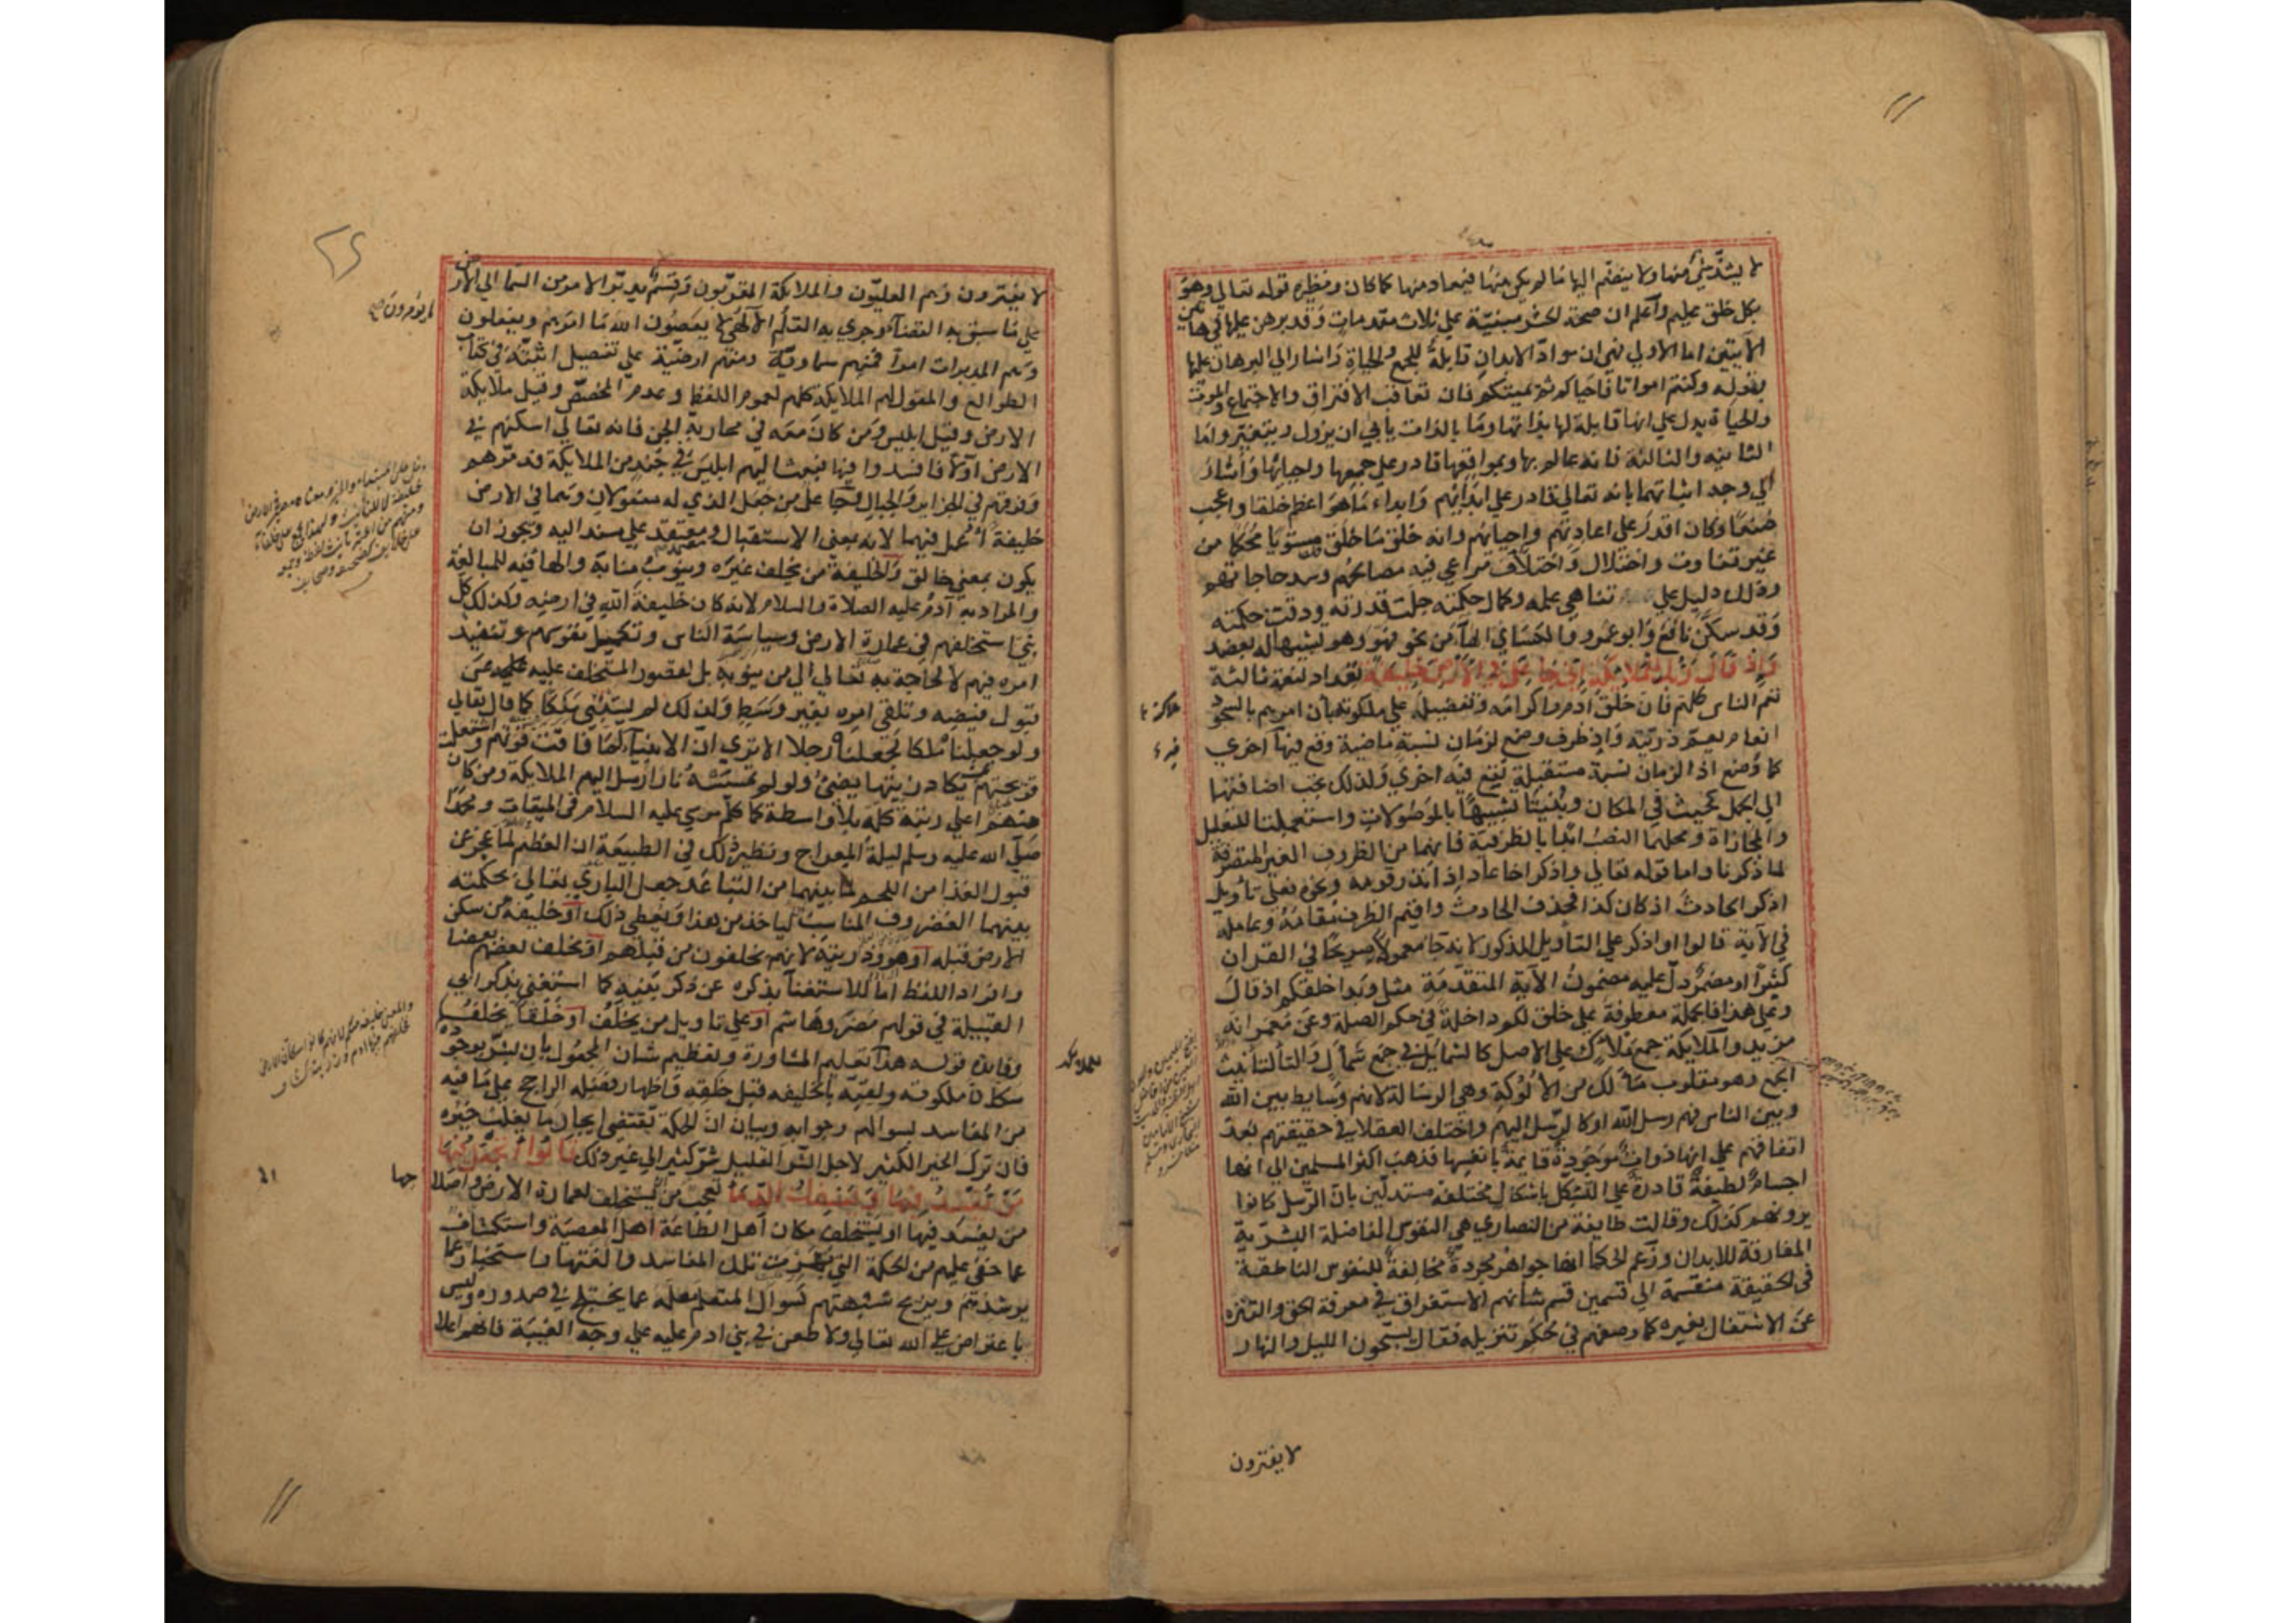 لا يشذ شيء منها ولا ينضم اليها ما لم يكن منها فيعاد منها كما كان ونظيره قوله تعالي وهو
بكل خلق عليم واعلم ان صحة الحشر مبنية علي ثلاث مقدمات وقد برهن عليها في هاتين
الآيتين اما الاولي فهي ان مواد الابدان قابلة للجمع والحياة واشار الي البرهان عليها
بقوله وكنتم امواتا فاحياكم ثم يميتكم فان تعاقب الافتراق والاجتماع والموت
والحياة يدل علي انها قابلة لها بذاتها وما بالذات يأبي ان يزول ويتغير واما
الثانيه والثالثة فانه عالم بها وبمواقعها قادر علي جمعها واحيائها واشار
الي وجه اثباتهما بانه تعالي قادر علي ابدائهم وابداء ما هو اعظم خلقا واعجب
صنعا وكان اقدر علي اعادتهم واحيائهم وانه خلق ما خلق مستويا محكما من
غير تفاوت واختلال واختلاف مراعي فيه مصالحهم وسد حاجاتهم
وذلك دليل علي تناهي علمه وكمال حكمته جلت قدرته ودقت حكمته
وقد سكن نافع وابو عمرو والكسائي الهاء من نحو فهو وهو تشبيها له بعضد
واذ قال ربك للملايكة اني جاعل في الارض خليفة تعداد لنعمة ثالثة
تعم الناس كلهم فان خلق ادم واكرامه وتفضيله علي ملكوته بأن امرهم بالسجود
انعام يعم ذريته واذ ظرف وضع لزمان نسبة ماضية وقع فيها اخري
كما وضع اذا لزمان نسبة مستقبلة تقع فيه اخري ولذلك يجب اضافتها
الي الجمل كحيث في المكان وبنيتا تشبيها بالموصولات واستعملتا للتعليل
والمجازاة ومحلهما النصب ابدا بالظرفية فانهما من الظروف الغير المتصرفة
لما ذكرنا واما قوله تعالي واذكر اخا عاد اذ انذر قومه ونحوه فعلي تأويل
اذكر الحادث اذ كان كذا فحذف الحادث واقيم الظرف مقامه وعامله
في الآية قالوا او اذكر علي التأويل المذكور لانه جا معمولا صريحا في القران
كثيرا او مضمر دل عليه مضمون الآية المتقدمة مثل وبدا خلقكم اذ قال
وعلي هذا فالجملة معطوفة علي خلق لكم داخلة في حكم الصلة وعن معمر انه
مزيد والملايكة جمع ملأك علي الاصل كالشمايل في جمع شمأل والتا لتأنيث
الجمع وهو مقلوب مألك من الألوكة وهي الرسالة لانهم وسايط بين الله
وبين الناس فهم رسل الله او كالرسل اليهم واختلف العقلا في حقيقتهم بعد
اتفاقهم علي انها ذوات موجودة قايمة بانفسها فذهب اكثر المسلمين الي انها
اجسام لطيفة قادرة علي التشكل باشكال مختلفة مستدلين بان الرسل كانوا
يرونهم كذلك وقالت طايفة من النصاري هي النفوس الفاضلة البشرية
المفارقة للابدان وزعم الحكما انها جواهر مجردة مخالفة للنفوس الناطقة
في الحقيقة منقسمة الي قسمين قسم شأنهم الاستغراق في معرفة الحق والتنزه
عن الاشتغال بغيره كما وصفهم في محكم تنزيله فقال يسبحون الليل والنهار
لا يفترون
لا يفترون وهم العليون والملايكة المقربون وقسم يدبر الامر من السما الي الارض
علي ما سبق به القضاء وجري به القلم الآلهي لا يعصون الله ما امرهم ويفعلون
وهم المدبرات امرا فمنهم سماوية ومنهم ارضية علي تفصيل اثبته في كتاب
الطوالع والمقول لهم الملايكة كلهم لعموم اللفظ وعدم المخصص وقيل ملايكة
الارض وقيل ابليس ومن كان معه في محاربة الجن فانه تعالي اسكنهم في
الارض اولا فافسدوا فيها فبعث اليهم ابليس في جند من الملايكة فدمرهم
وفرقهم في الجزاير والجبال وجاعل من جعل الذي له مفعولان وهما في الارض
خليفة اعمل فيهما لانه بمعني الاستقبال ومعتمد علي مسند اليه ويجوز ان
يكون بمعني خالق والخليفة من يخلف غيره وينوب منابه والها فيه للمبالغة
والمراد به آدم عليه الصلاة والسلام لانه كان خليفة الله في ارضه وكذلك كل
نبي استخلفهم في عمارة الارض وسياسة الناس وتكميل نفوسهم وتنفيذ
امره فيهم لا لحاجة به تعالي الي من ينوبه بل لقصور المستخلف عليه عن
قبول فيضه وتلقي امره بغير وسط ولذلك لم يستنبي ملكا كما قال تعالي
ولو جعلناه ملكا لجعلناه رجلا الا تري ان الانبياء لما فاقت قوتهم واشتعلت
قريحتهم بحيث يكاد زيتها يضئ ولو لم تمسسه نار ارسل اليهم الملايكة ومن كان
منهم اعلي رتبة كلمه بلا واسطة كما كلم موسي عليه السلام في الميقات ومحمدا
صلي الله عليه وسلم ليلة المعراج ونظير ذلك في الطبيعة ان العظم لما عجز عن
قبول الغذا من اللحم لما بينهما من التباعد جعل الباري تعالي بحكمته
بينهما الغضروف المناسب لهما لياخذ من هذا ويعطي ذلك او خليفة من سكن
الارض قبله او هو وذريته لانهم يخلفون من قبلهم او يخلف بعضهم بعضا
وافراد اللفظ اما للاستغنآ بذكره عن ذكر بنيه كما استغني بذكر ابي
القبيلة في قولهم مضر وهاشم او علي تاويل من يخلف او خلقا يخلف
وفائدة قوله هذا تعليم المشاورة وتعظيم شان المجعول بان بشر بوجود
سكان ملكوته ولقبه بالخليفه قبل خلقه واظهار فضله الراجح علي ما فيه
من المفاسد بسوالهم وجوابه وبيان ان الحكمة تقتضي ايجاد ما يغلب خيره
فان ترك الخير الكثير لاجل الشر القليل شر كثير الي غير ذلك قالوا أتجعل فيها
من يفسد فيها ويسفك الدماء تعجب من ان يستخلف لعمارة الارض واصلاحها
من يفسد فيها او يستخلف مكان اهل الطاعة اهل المعصية واستكشاف
عما خفي عليهم من الحكمة التي بهرت تلك المفاسد والغتها واستخبار عما
يرشدهم ويزيح شبهتهم كسوال المتعلم معلمه عما يختلج في صدوره وليس
باعتراض علي الله تعالي ولا طعن في بني ادم عليه علي وجه الغيبة فانهم اعلا